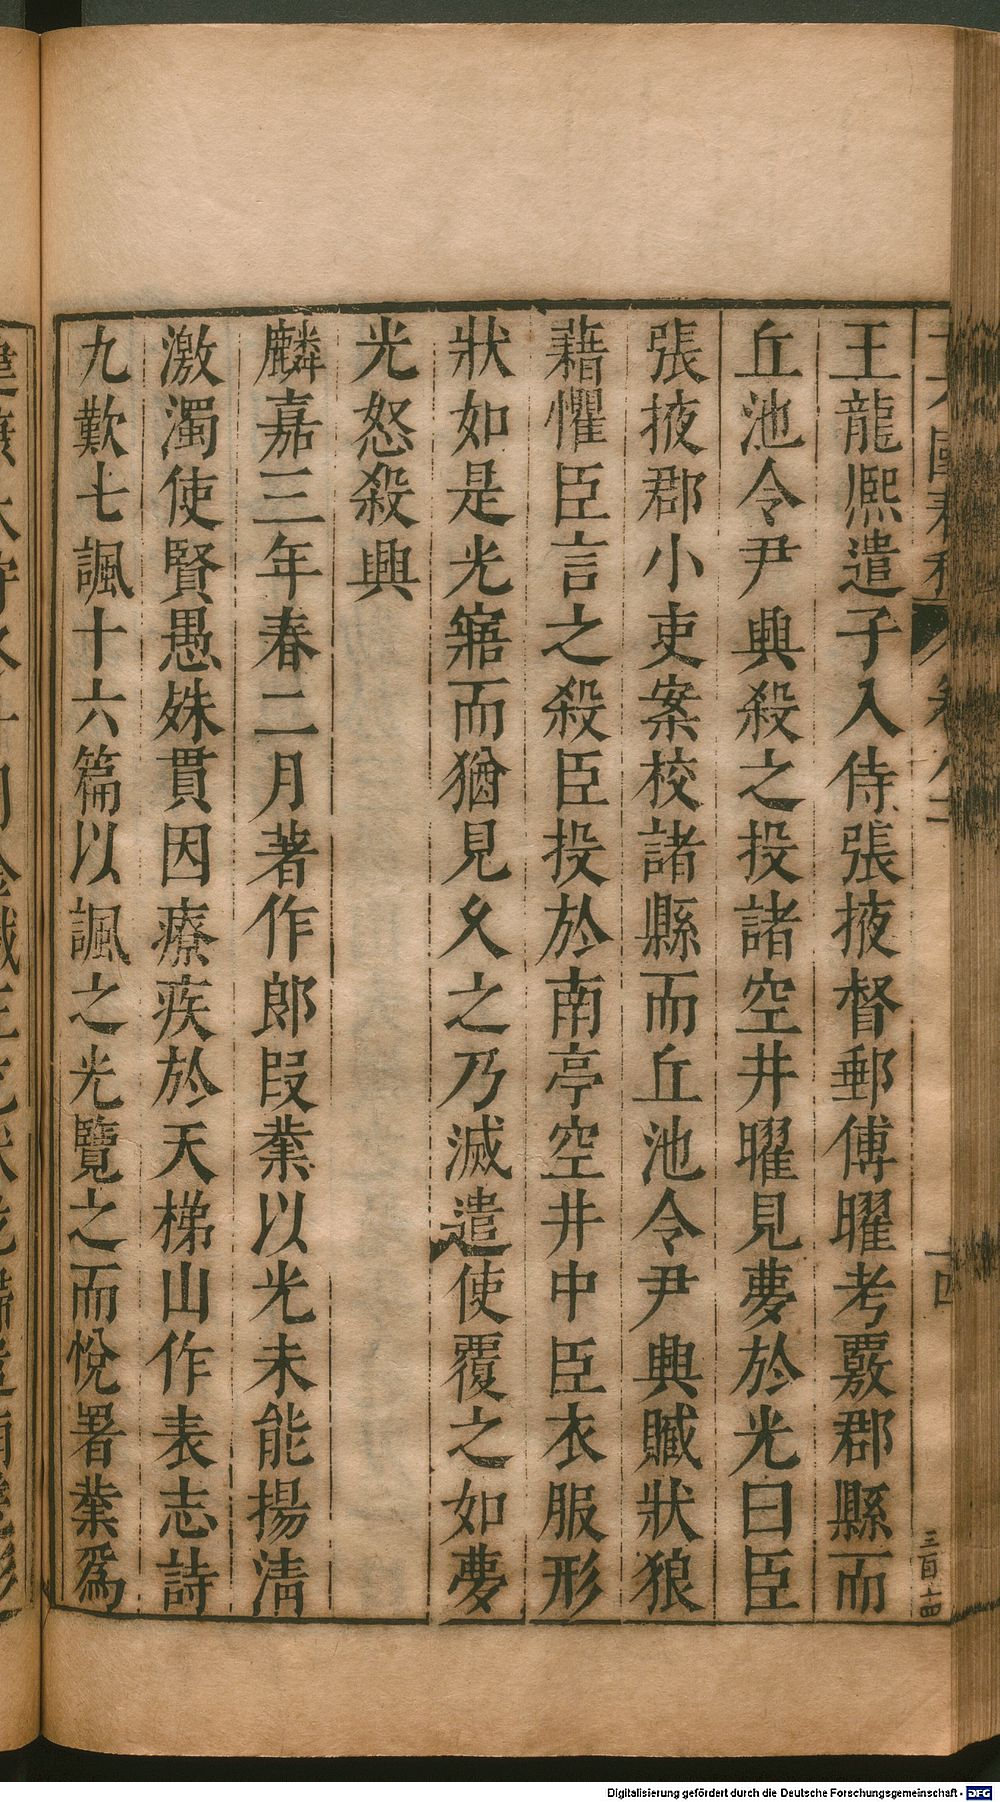 王龍熈遣子入侍張掖督郵傅曜考覈郡縣而
丘池令尹興殺之投諸空井曜見夢於光曰臣
張掖郡小吏案校諸縣而丘池令尹興贓狀狼
藉懼臣言之殺臣投於南亭空井中臣衣服形
狀如是光寤而猶見乆之乃滅遣使覆之如夢
光怒殺興
麟嘉三年春二月著作郎叚業以光未能揚淸
激濁使賢愚姝貫因療疾於天梯山作表志詩
九歎七諷十六篇以諷之光覽之而悅署業爲
三百十四
Digitalisierung gefördert durch die Deutsche Forschungsgemeinschaft - DFG